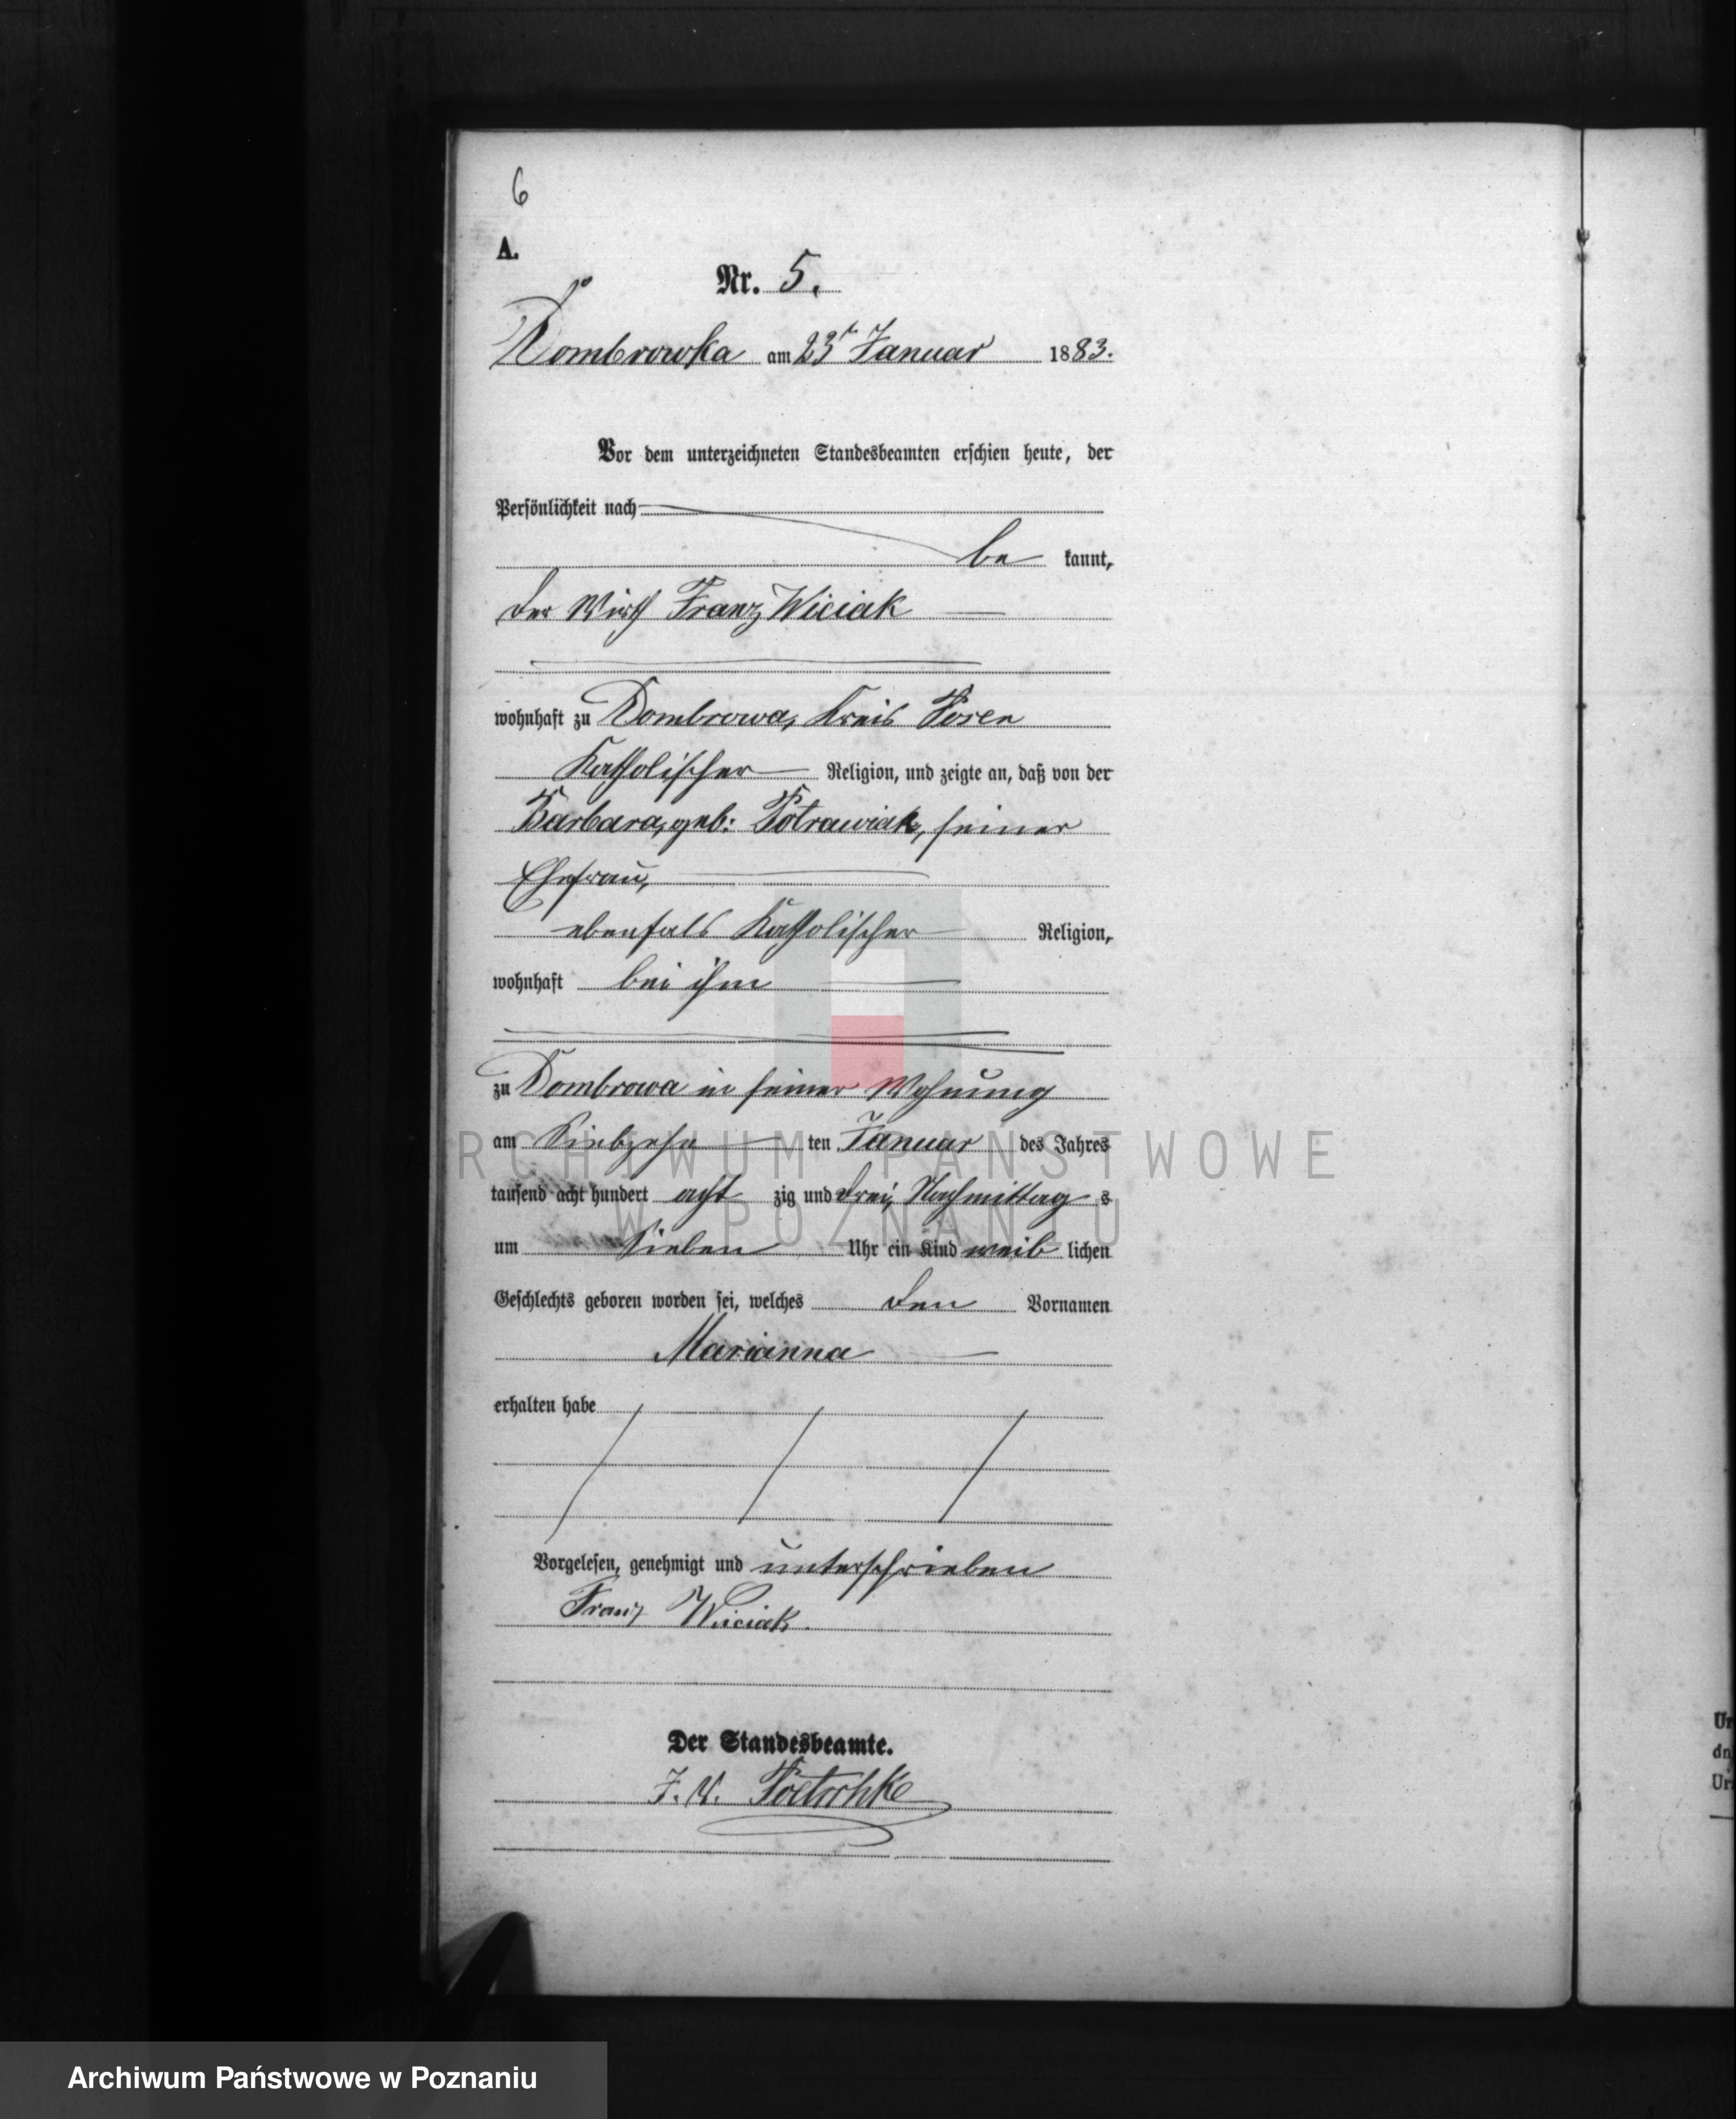 6
A.
Nr. 5.
Dombrowka am 23t Januar 1883.
Vor dem unterzeichneten Standesbeamten erschien heute, der
Persönlichkeit nach
be kannt,
der Wirth Franz Wiciak
wohnhaft zu Dombrowa, Kreis Posen
Katholischer Religion, und zeigte an, daß von der
Barbara, geb: Potrawiak, seiner
Ehefrau,
ebenfals Katholischer Religion,
wohnhaft bei ihm
zu Dombrowa in seiner Wohnung
am Siebzehn ten Januar des Jahres
tausend acht hundert acht zig und drei, Nachmittag s
um Sieben Uhr ein Kind weib lichen
Geschlechts geboren worden sei, welches den Vornamen
Marianna
erhalten habe
Vorgelesen, genehmigt und unterschrieben
Franz Wiciak.
Der Standesbeamte.
J. V. Poetschke
ARCHIWUM PAŃSTWOWE
W POZNANIU
Ur
dn
Ur
Archiwum Państwowe w Poznaniu